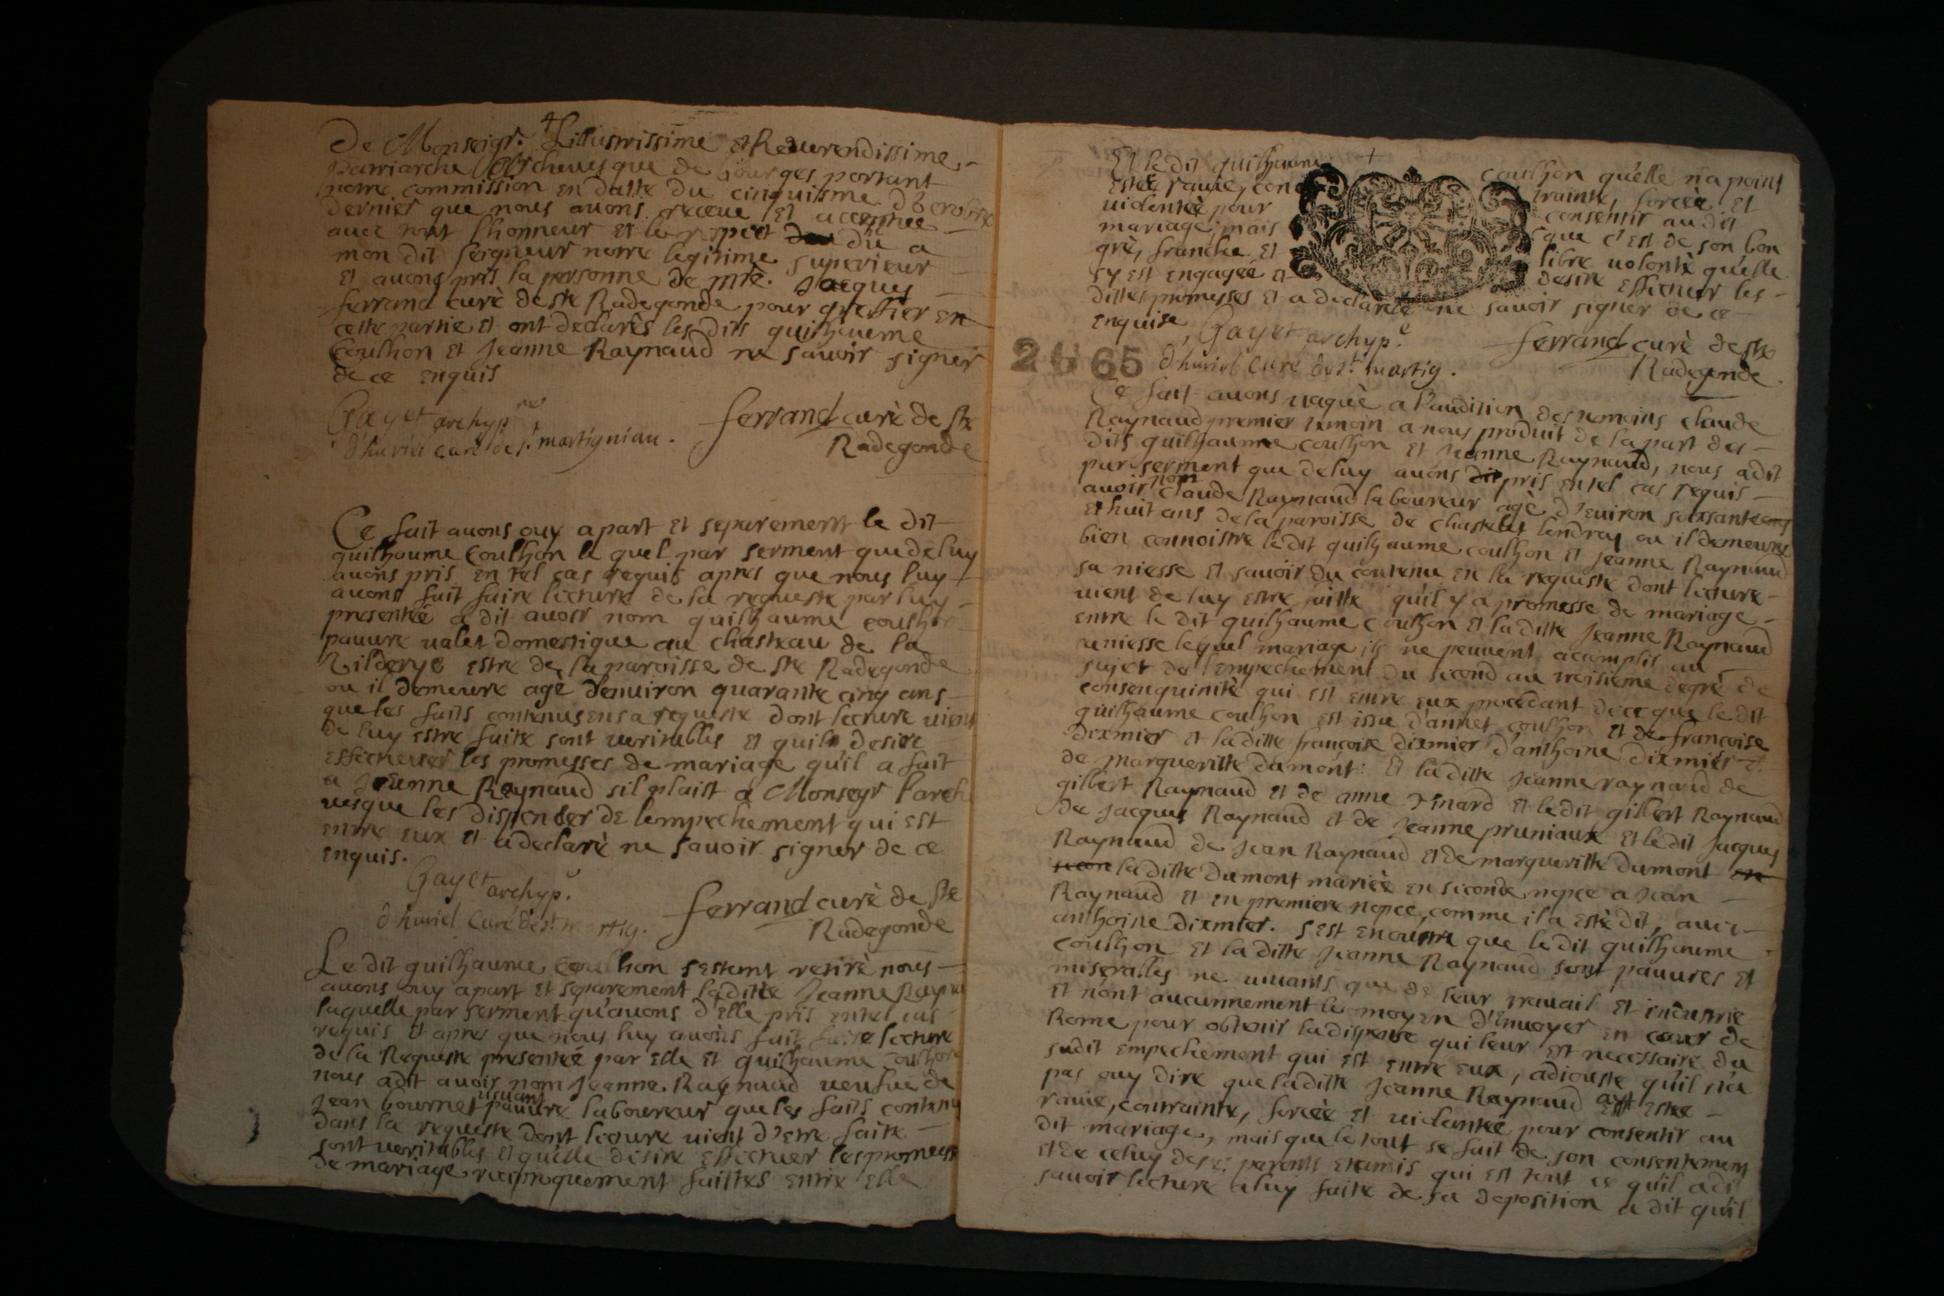 De Monseigr. Lillustrissime et Reuerendissime
patriarche Archeuesque de bourges portant
notre commission en datte du cinquiesme d'octobre
dernier que nous auons receue et acceptée
auec tout l'honneur et le respect du a
mon dit seigneur notre legitime superieur
et auons pris la personne de mre. Jacques
ferrand curè de ste Radegonde pour greffier en
cette partie et ont declarès lesdits guilhaume
Coulhon et Jeanne Raynaud ne sauoir signer
de ce enquis
Gayet archyp
d'huriel curé de st. martignian.
ferrand curè de ste
Radegonde
Ce fait auons ouy apart et separement le dit
guilhaume Coulhon le quel par serment que deluy
auons pris en tel cas requis apres que nous luy
auons fait faire lecture de la requeste par luy
presentée a dit auoir nom guilhaume coulhon
pauure valet domestique au chasteau de la
estre de la paroisse de ste Radegonde
ou il demeure agè denuiron quarante cinq ans
que les faits contenus en sa requeste dont lecture vient
de luy estre faite sont veritables et quil desire
effectuer les promesses de mariage quil a fait
a Jeanne Raynaud sil plaist a Monseigr l'arche
uesque les dispenser de lempechement qui est
entre eux et a declarè ne sauoir signer de ce
enquis.
Gayet archyp.
d'huriel Curé de st martig.
ferrand curè de ste
Radegonde
Le dit guilhaume coulhon sestant retirè nous
auons ouy apart et separement laditte Jeanne Rayn
laquelle par serment qu'auons d'elle pris en tel cas
requis et apres que nous luy auons fait faire lecture
de la Requeste presentée par elle et guilhaume coulhon
nous adit auoir nom Jeanne Raynaud veufue de
Jean bournet viuant pauure laboureur que les faits contenu
dans la requeste dont lecture vient d'etre faite
sont veritables et quelle desire effectuer les promess
de mariage reciproquement faittes entre elle
Et le dit guilhaume coulhon qu'elle n'a point
estée rauie, con trainte, forcèe et
violentèe pour consentir au dit
mariage, mais que c'est de son bon
grè, franche et libre volontè qu'elle
sy est engagée et desire effectuer les
dittes promesses et a declarée ne sauoir signer de ce
enquise
Gayet archyp.
d'huriel Curé de st. martig.
ferrand curè de ste
Radegonde
2665
Ce fait auons vaquè a l'audition des temoins claude
Raynaud premier temoin a nous produit de la part des
dits guilhaume coulhon et Jeanne Raynaud, nous adit
par serment que de luy auons pris en tel cas requis
auoir nom claude Raynaud laboureur agè d'euiron soissante
et huit ans de la paroisse de chastelet londray ou il demeure
bien connoistre ledit guilhaume coulhon et Jeanne Raynaud
sa niesse et sauoir du contenu en la requeste dont lecture
vient de luy estre faitte qu'il y a promesse de mariage
entre le dit guilhaume coulhon et laditte Jeanne Raynaud
sa niesse lequel mariage ils ne peuuent accomplis au
sujet de l'empechement du second au troisieme degrè de
consenguinitè qui est entre eux procedant de ce que le dit
guilhaume coulhon est issu d'annet coulhon et de francoise
diximier et laditte francoise diximier d'anthoine diximier et
de Marguerite dumont: Et laditte Jeanne raynaud de
gilbert Raynaud et de anne et le dit gilbert Raynaud
de Jacques Raynaud et de Jeanne pruniaux et le dit Jacques
Raynaud de Jean Raynaud et de margueritte dumont
la ditte dumont mariée en seconde nopce a Jean
Raynaud et en premiere nopce, comme il a estè dit, auec
anthoine diximier. sest enoutre que le dit guilhaume
coulhon et la ditte Jeanne Raynaud sont pauures et
miserables ne viuants que de leur trauail et industrie
et n'ont aucunnement le moyen d'enuoyer en cour de
Rome pour obtenir la dispense qui leur est necessaire du
sudit empechement qui est entre eux, adiouste qu'il n'a
pas ouy dire que laditte Jeanne Raynaud ayt estee
rauie, contrainte, forcèe et violentèe pour consentir au
dit mariage, mais que le tout se fait de son consentement
et de celuy de ses parents et amis qui est tout ce qu'il a dit
sauoir lecture a luy faite de sa deposition a dit qu'il